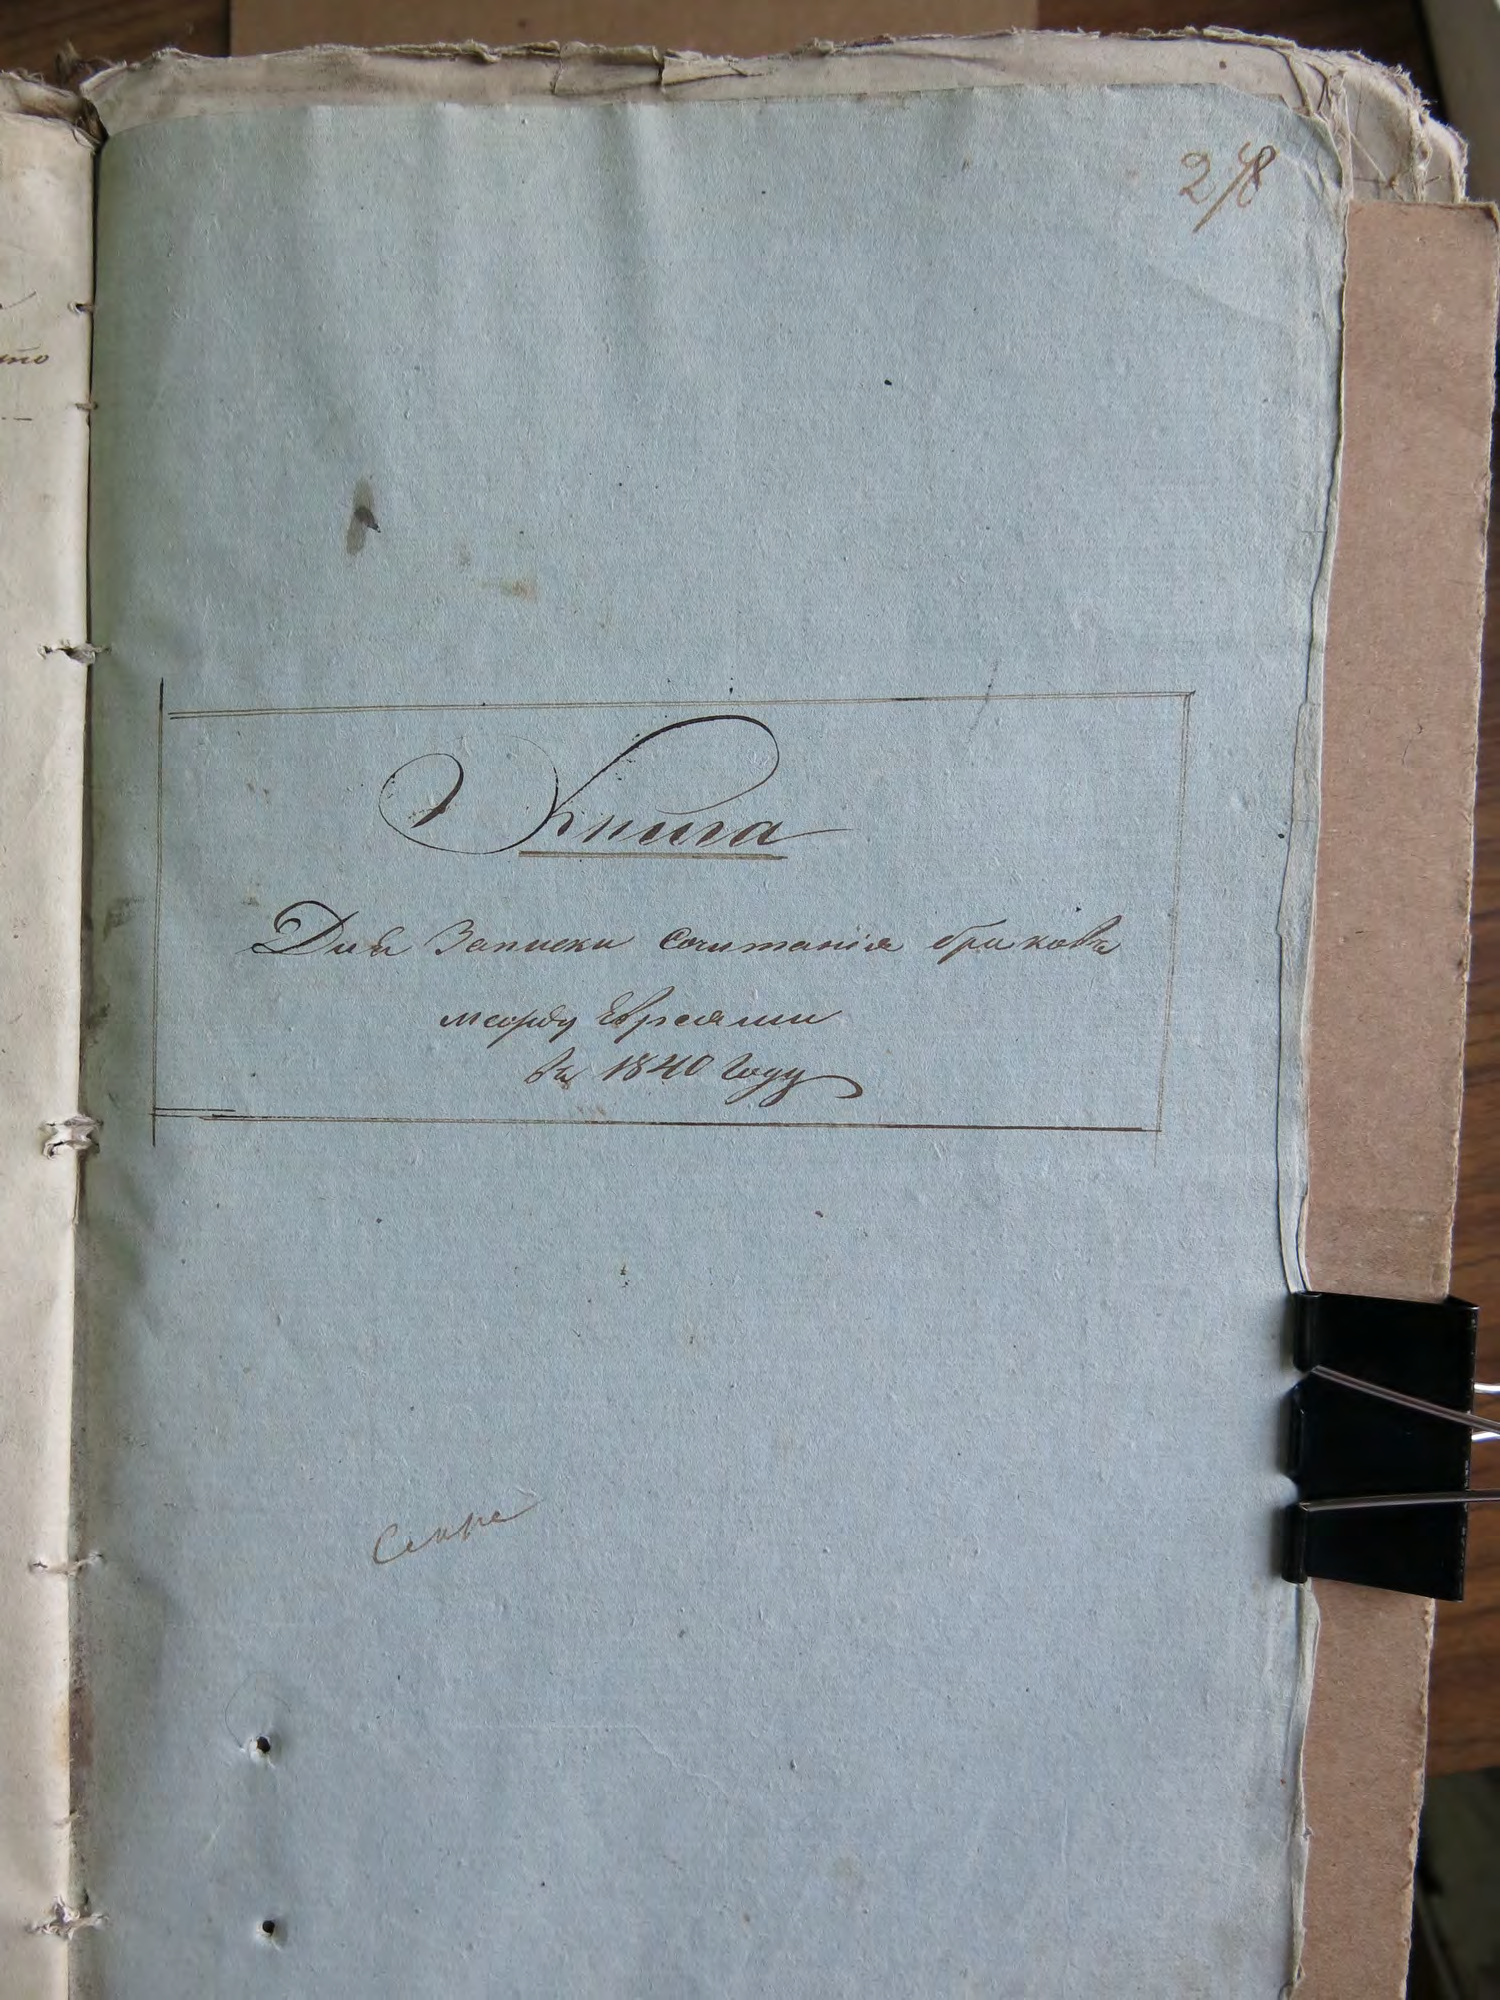 278
Книга
Для Записки Сочитанія браковъ
между Евреями
въ 1840 Году